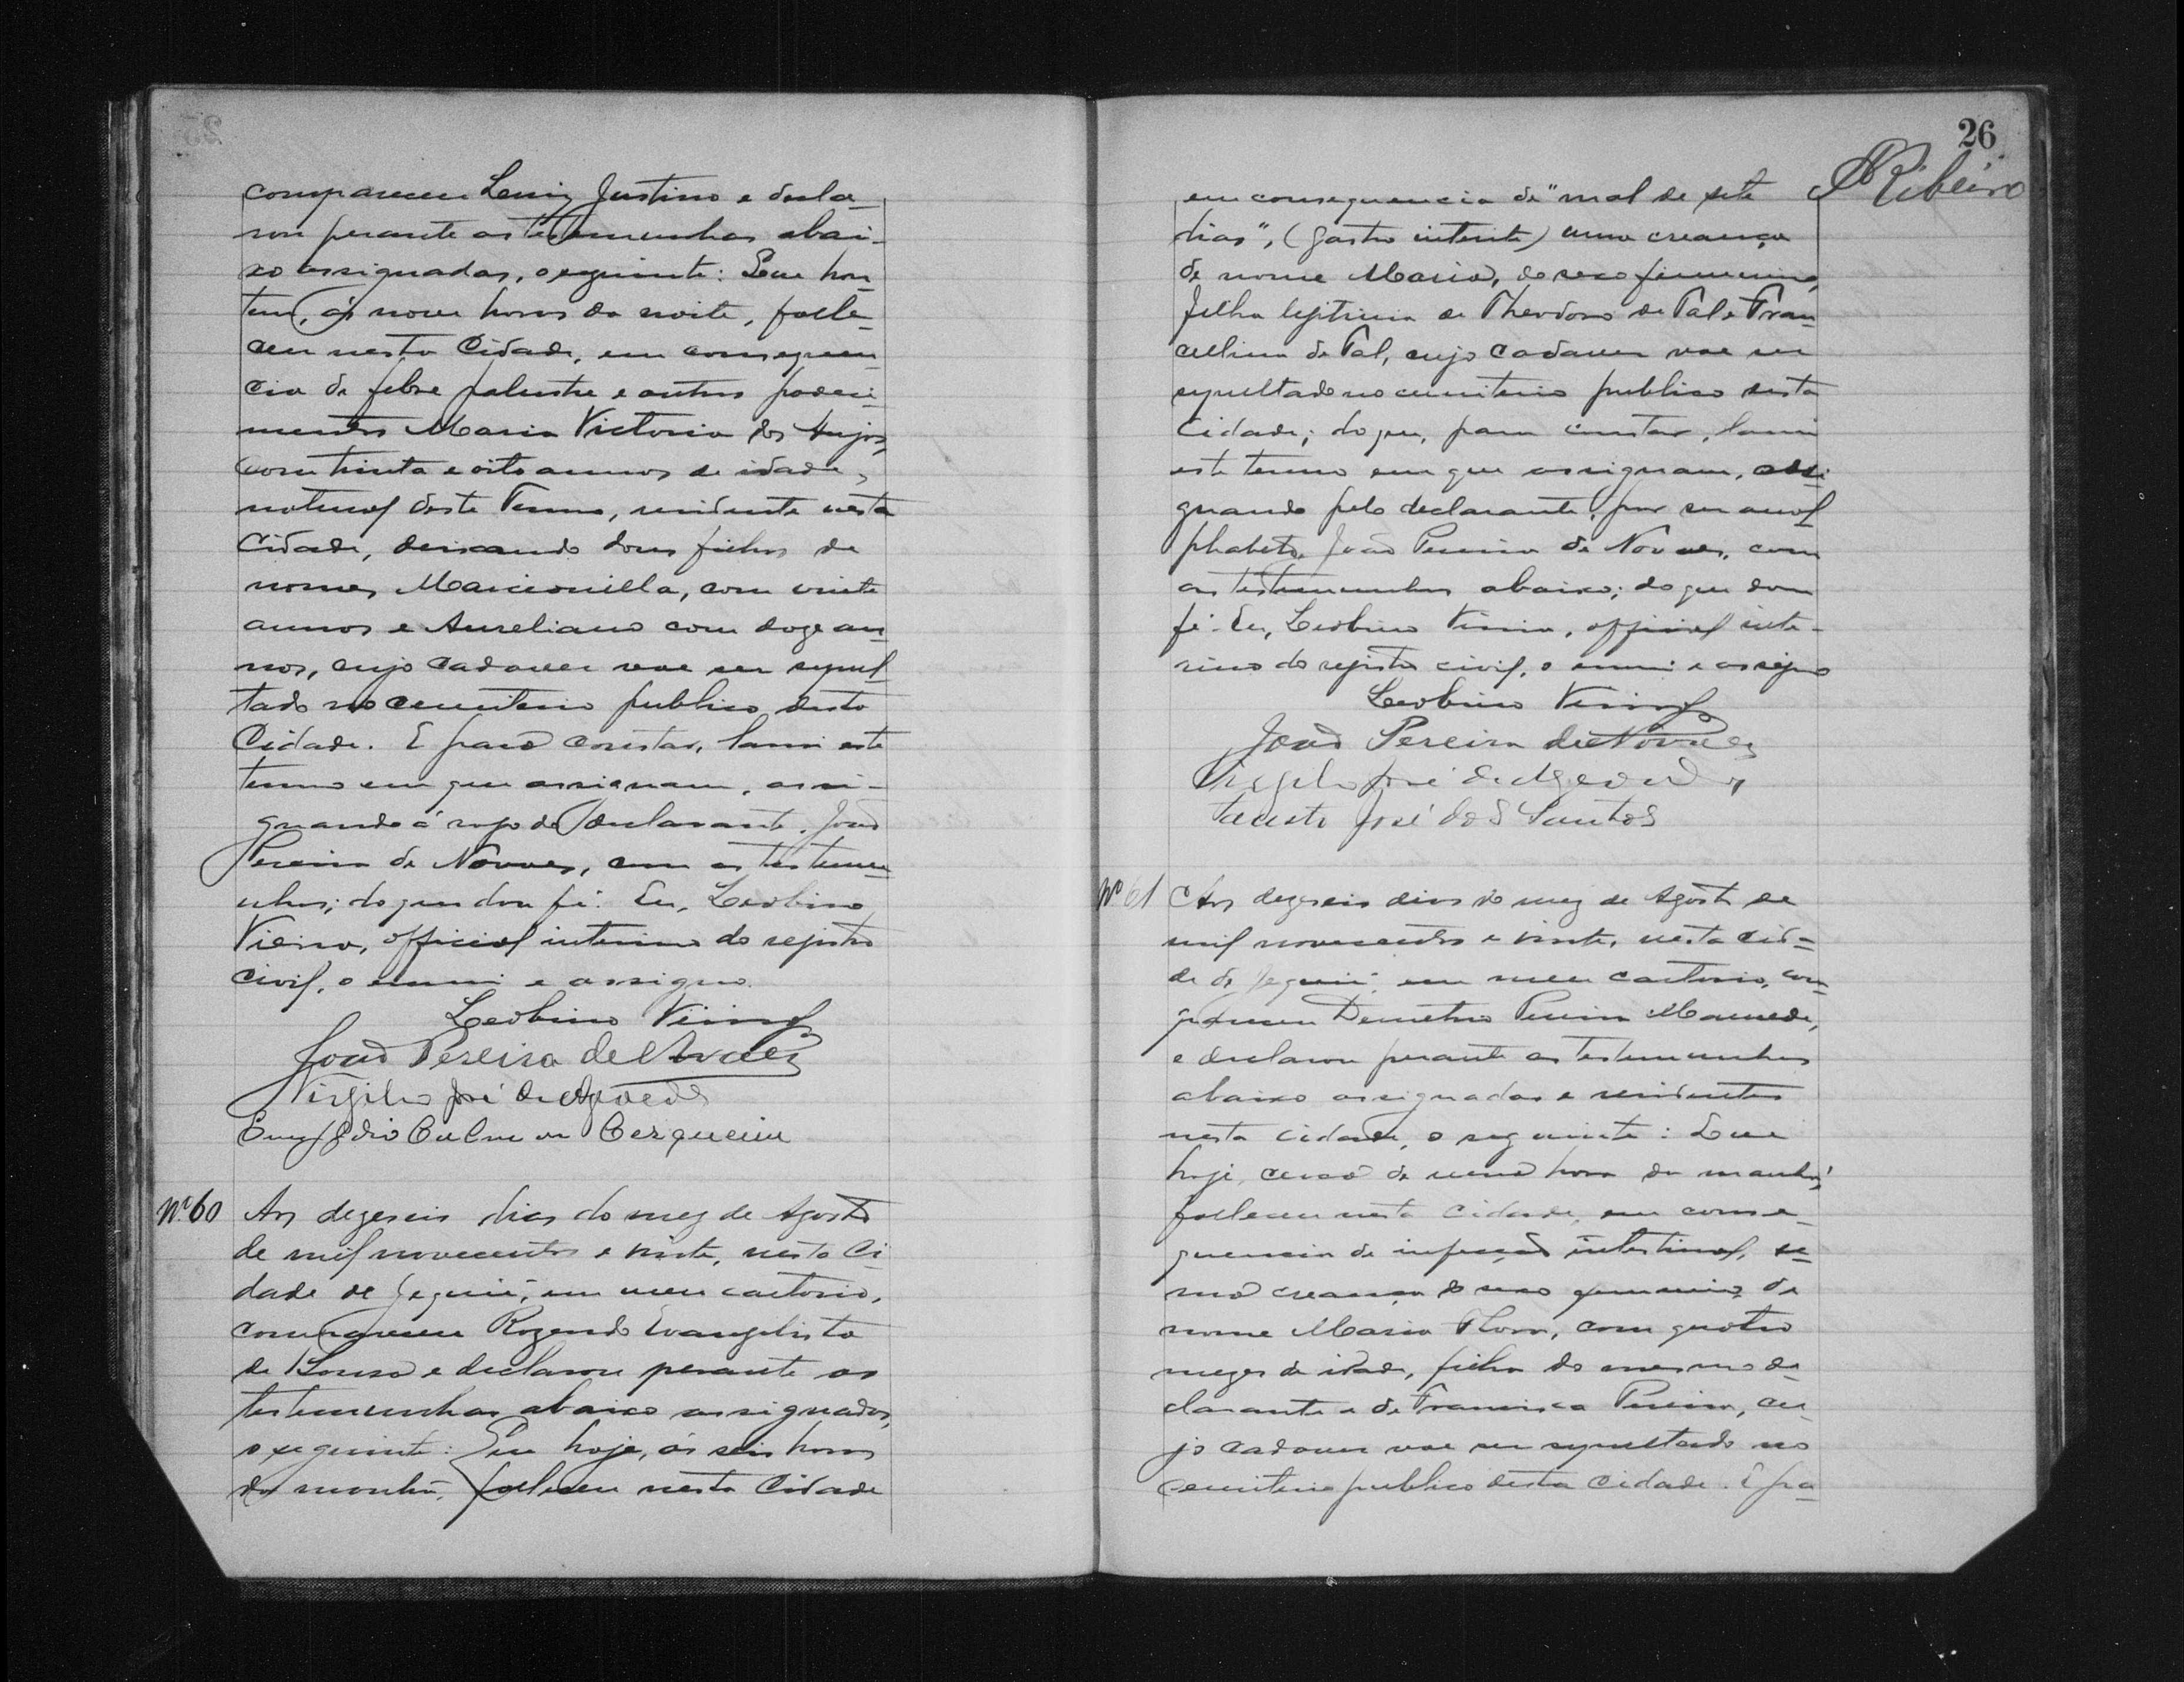 compareceu Luiz Justino e decla-
rou perante as testemunhas abai-
xo assignadas, o seguinte: Que hon-
tem, ás nove horas da noite, falle-
ceu nesta Cidade, em consequen-
cia de febre palustre e outros padeci-
mentos Maria Victoria dos Anjos,
com trinta e oito annos de idade,
natural deste Termo, residente nesta
Cidade, deixando dous filhos de
nomes Marcionilla, com vinte
annos e Aureliano com doze an-
nos, cujo cadaver vae ser sepul-
tado no cemiterio publico desta
Cidade. E para constar, lavrei este
termo em que assignam, assi-
gnando á rogo do declarante, João
Pereira de Novaes, com as testemu-
nhas; do que dou fé. Eu, Leobino
Vieira, official interino do registro
civil, o escrevi e assigno.
Leobino Vieira
João Pereira de Novaes
Virgilio José de Azevedo
Cerqueira
Nº 60 Aos dezeseis dias do mez de Agosto
de mil novecentos e vinte, nesta Ci-
dade de Jequié, em meu cartorio,
compareceu Rozendo Evangelista
de Souza e declarou perante as
testemunhas abaixo assignadas,
o seguinte: Que hoje, ás seis horas
da manhã, falleceu nesta Cidade
26
Ribeiro
em consequencia de "mal de sete
dias", (gastro interite) uma creança
de nome Maria, do sexo femenino,
filha legitima de Theodoro de Tal e Fran-
cellina de Tal, cujo cadaver vae ser
sepultado no cemiterio publico desta
Cidade; do que, para constar, lavrei
este termo em que assignam, assi-
gnando pelo declarante, por ser anal-
phabeto, João Pereira de Novaes, com
as testemunhas abaixo; do que dou
fé. Eu, Leobino Vieira, official inte-
rino do registro civil, o escrevi e assigno
Leobino Vieira
João Pereira de Novaes
Virgilio José de Azevedo
Fausto José dos Santos
Nº 61 Aos dezeseis dias do mez de Agosto de
mil novecentos e vinte, nesta cida-
de de Jequié, em meu cartorio, com-
pareceu Demetrio Pereira Mamede,
e declarou perante as testemunhas
abaixo assignadas e residentes
nesta cidade, o seguinte: Que
hoje, cerca de uma hora da manhã,
falleceu nesta Cidade, em conse-
quencia de infecção intestinal, u-
ma creança do sexo femenino, de
nome Maria Flora, com quatro
mezes de idade, filha do mesmo de-
clarante e de Francisca Pereira, cu-
jo cadaver vae ser sepultado no
cemiterio publico desta Cidade. E pa-